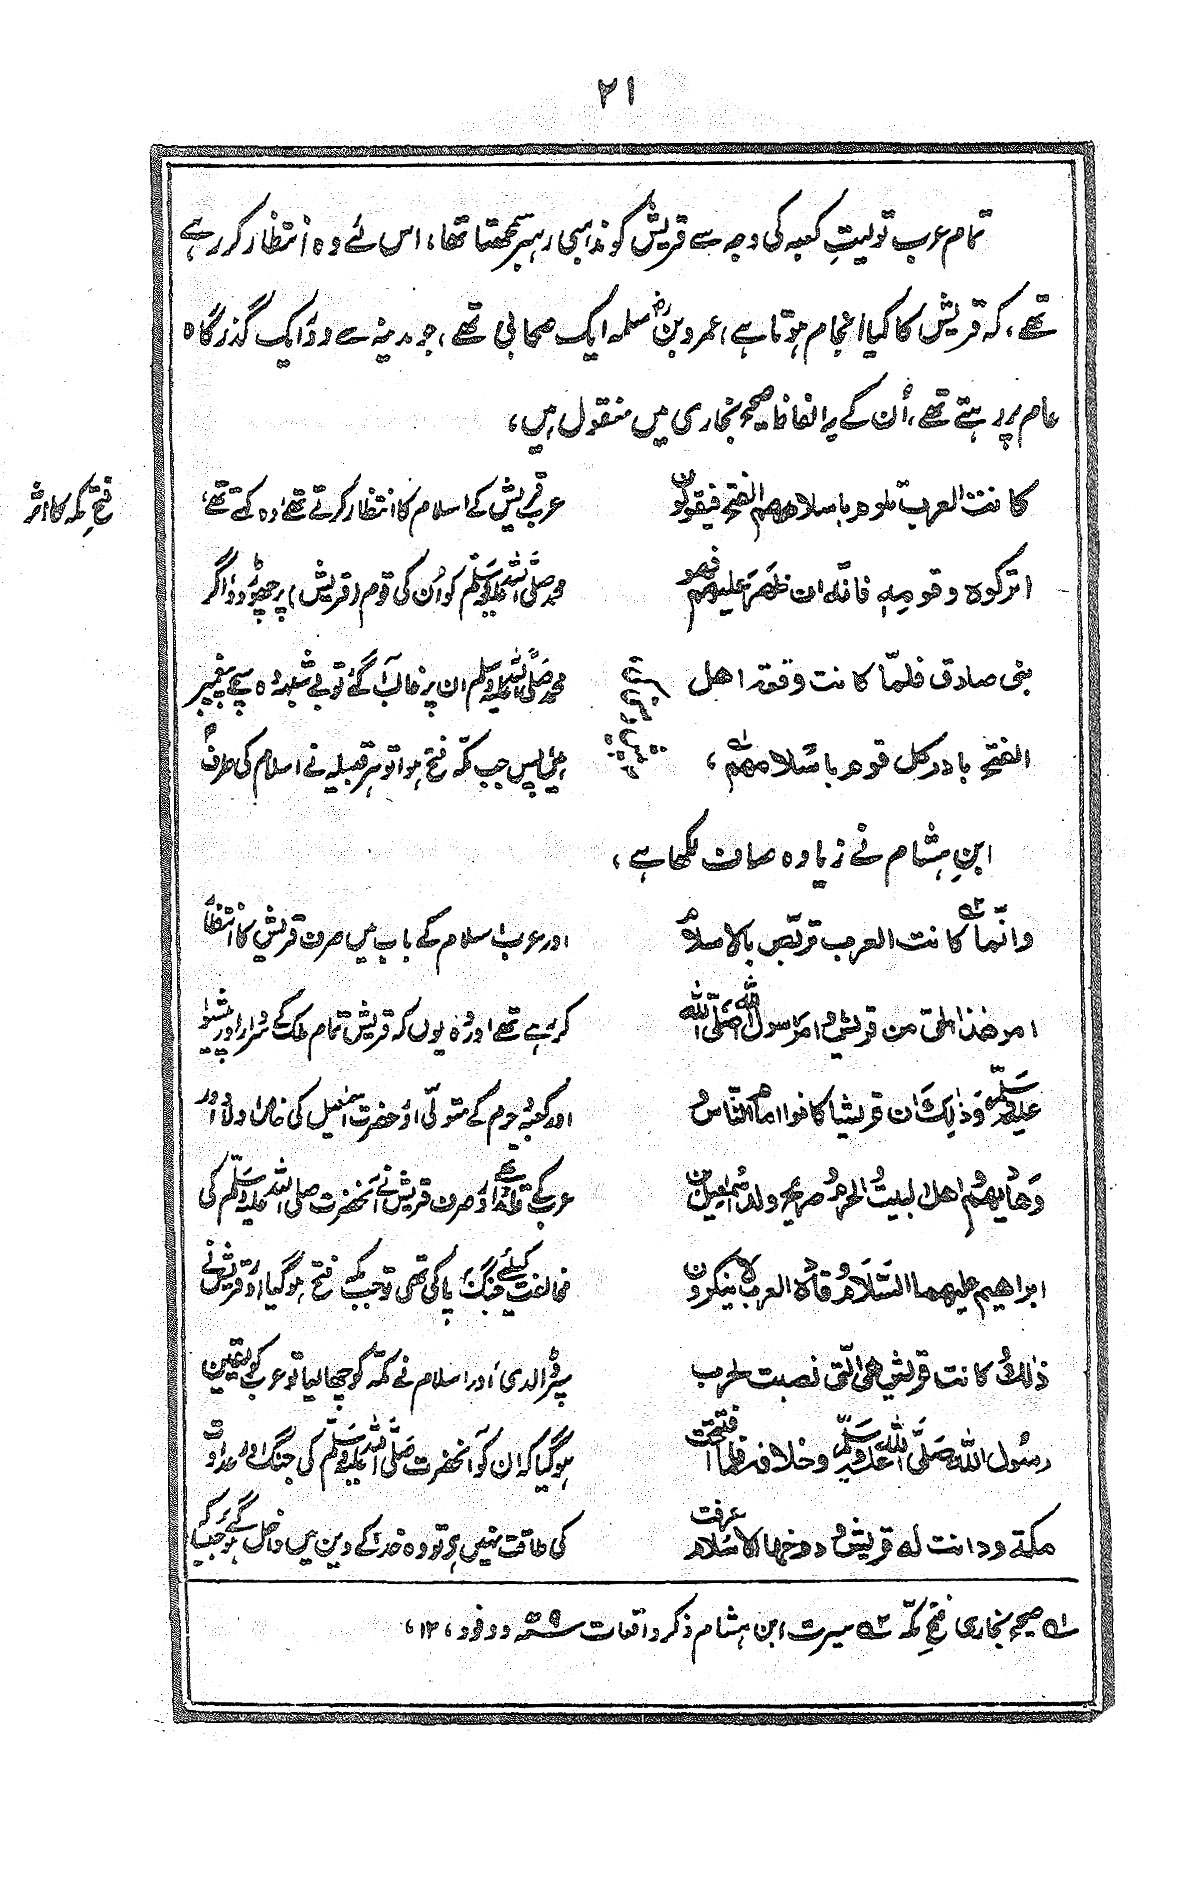 ۲۱
تمام عرب تولیتِ کعبہ کی وجہ سے قریش کو مذہبی رہبر سمجھتا تھا، اس لئے وہ انتظار کر رہے
تھے، کہ قریش کا کیا انجام ہوتا ہے، عمرو بن سلمہؓ ایک صحابی تھے، جو مدینہ سے دور ایک گذرگاہ
عام پر رہتے تھے، اُن کے یہ الفاظ صحیح بخاری میں منقول ہیں،
فتحِ مکہ کا اثر
کانت العرب تلوم باسلامهم الفتح فیقولون
اترکوه وقومه فانّه ان ظهر علیهم فهو
نبی صادق فلمّا کانت وقعۃ اهل
الفتح بادر کل قوم باسلامهم؂۱،
عرب قریش کے اسلام کا انتظار کرتے تھے، وہ کہتے تھے،
محمد صلی اللہ علیہ وسلم کو اُن کی قوم (قریش) پر چھوڑ دو، اگر
محمد صلی اللہ علیہ وسلم ان پر غالب آگئے تو بے شبہہ وہ سچے پیغمبر
ہیں، پس جب مکہ فتح ہوا تو ہر قبیلہ نے اسلام کی طرف
ابنِ ہشام نے زیادہ صاف لکھا ہے،
وانّما؂۲ کانت العرب تربّص بالاسلام
امر هٰذا الحیّ من قریش وامر رسول اللہ صلّی اللہ
علیہ وسلّم وذٰلک ان قریشا کانوا امام النّاس
وهادیهم واهل البیت الحرم وصریح ولد اسمٰعیل بن
ابراهیم علیهما السّلام وقادة العرب لا ینکرون
ذٰلک وکانت قریش هی الّتی نصبت لحرب
رسول اللہ صلّی اللہ علیہ وسلّم وخلافه فلما افتتحت
مکة ودانت له قریش ودوخها الاسلام عرفت
اور عرب اسلام کے باب میں صرف قریش کا انتظار
کر رہے تھے اور وہ یوں کہ قریش تمام ملک کے سردار اور پیشوا
اور کعبہ وحرم کے متولّی اور حضرت اسمٰعیل کی خاص اولاد اور
عرب کے قائد تھے اور صرف قریش نے آنحضرت صلی اللہ علیہ وسلّم کی
مخالفت کیلئے جنگ برپا کی تھی تو جب مکہ فتح ہوگیا اور قریش نے
سپر ڈالدی، اور اسلام نے مکّہ کو چھا لیا تو عرب کو یقین
ہوگیا کہ ان کو آنحضرت صلّی اللہ علیہ وسلّم کی جنگ اور عداوت
کی طاقت نہیں ہے تو وہ خدا کے دین میں داخل ہوگئے جیسا کہ
؂۱ صحیح بخاری فتحِ مکّہ ؂۲ سیرت ابن ہشام ذکر واقعات ۹ھ ووفود، ۱۲،